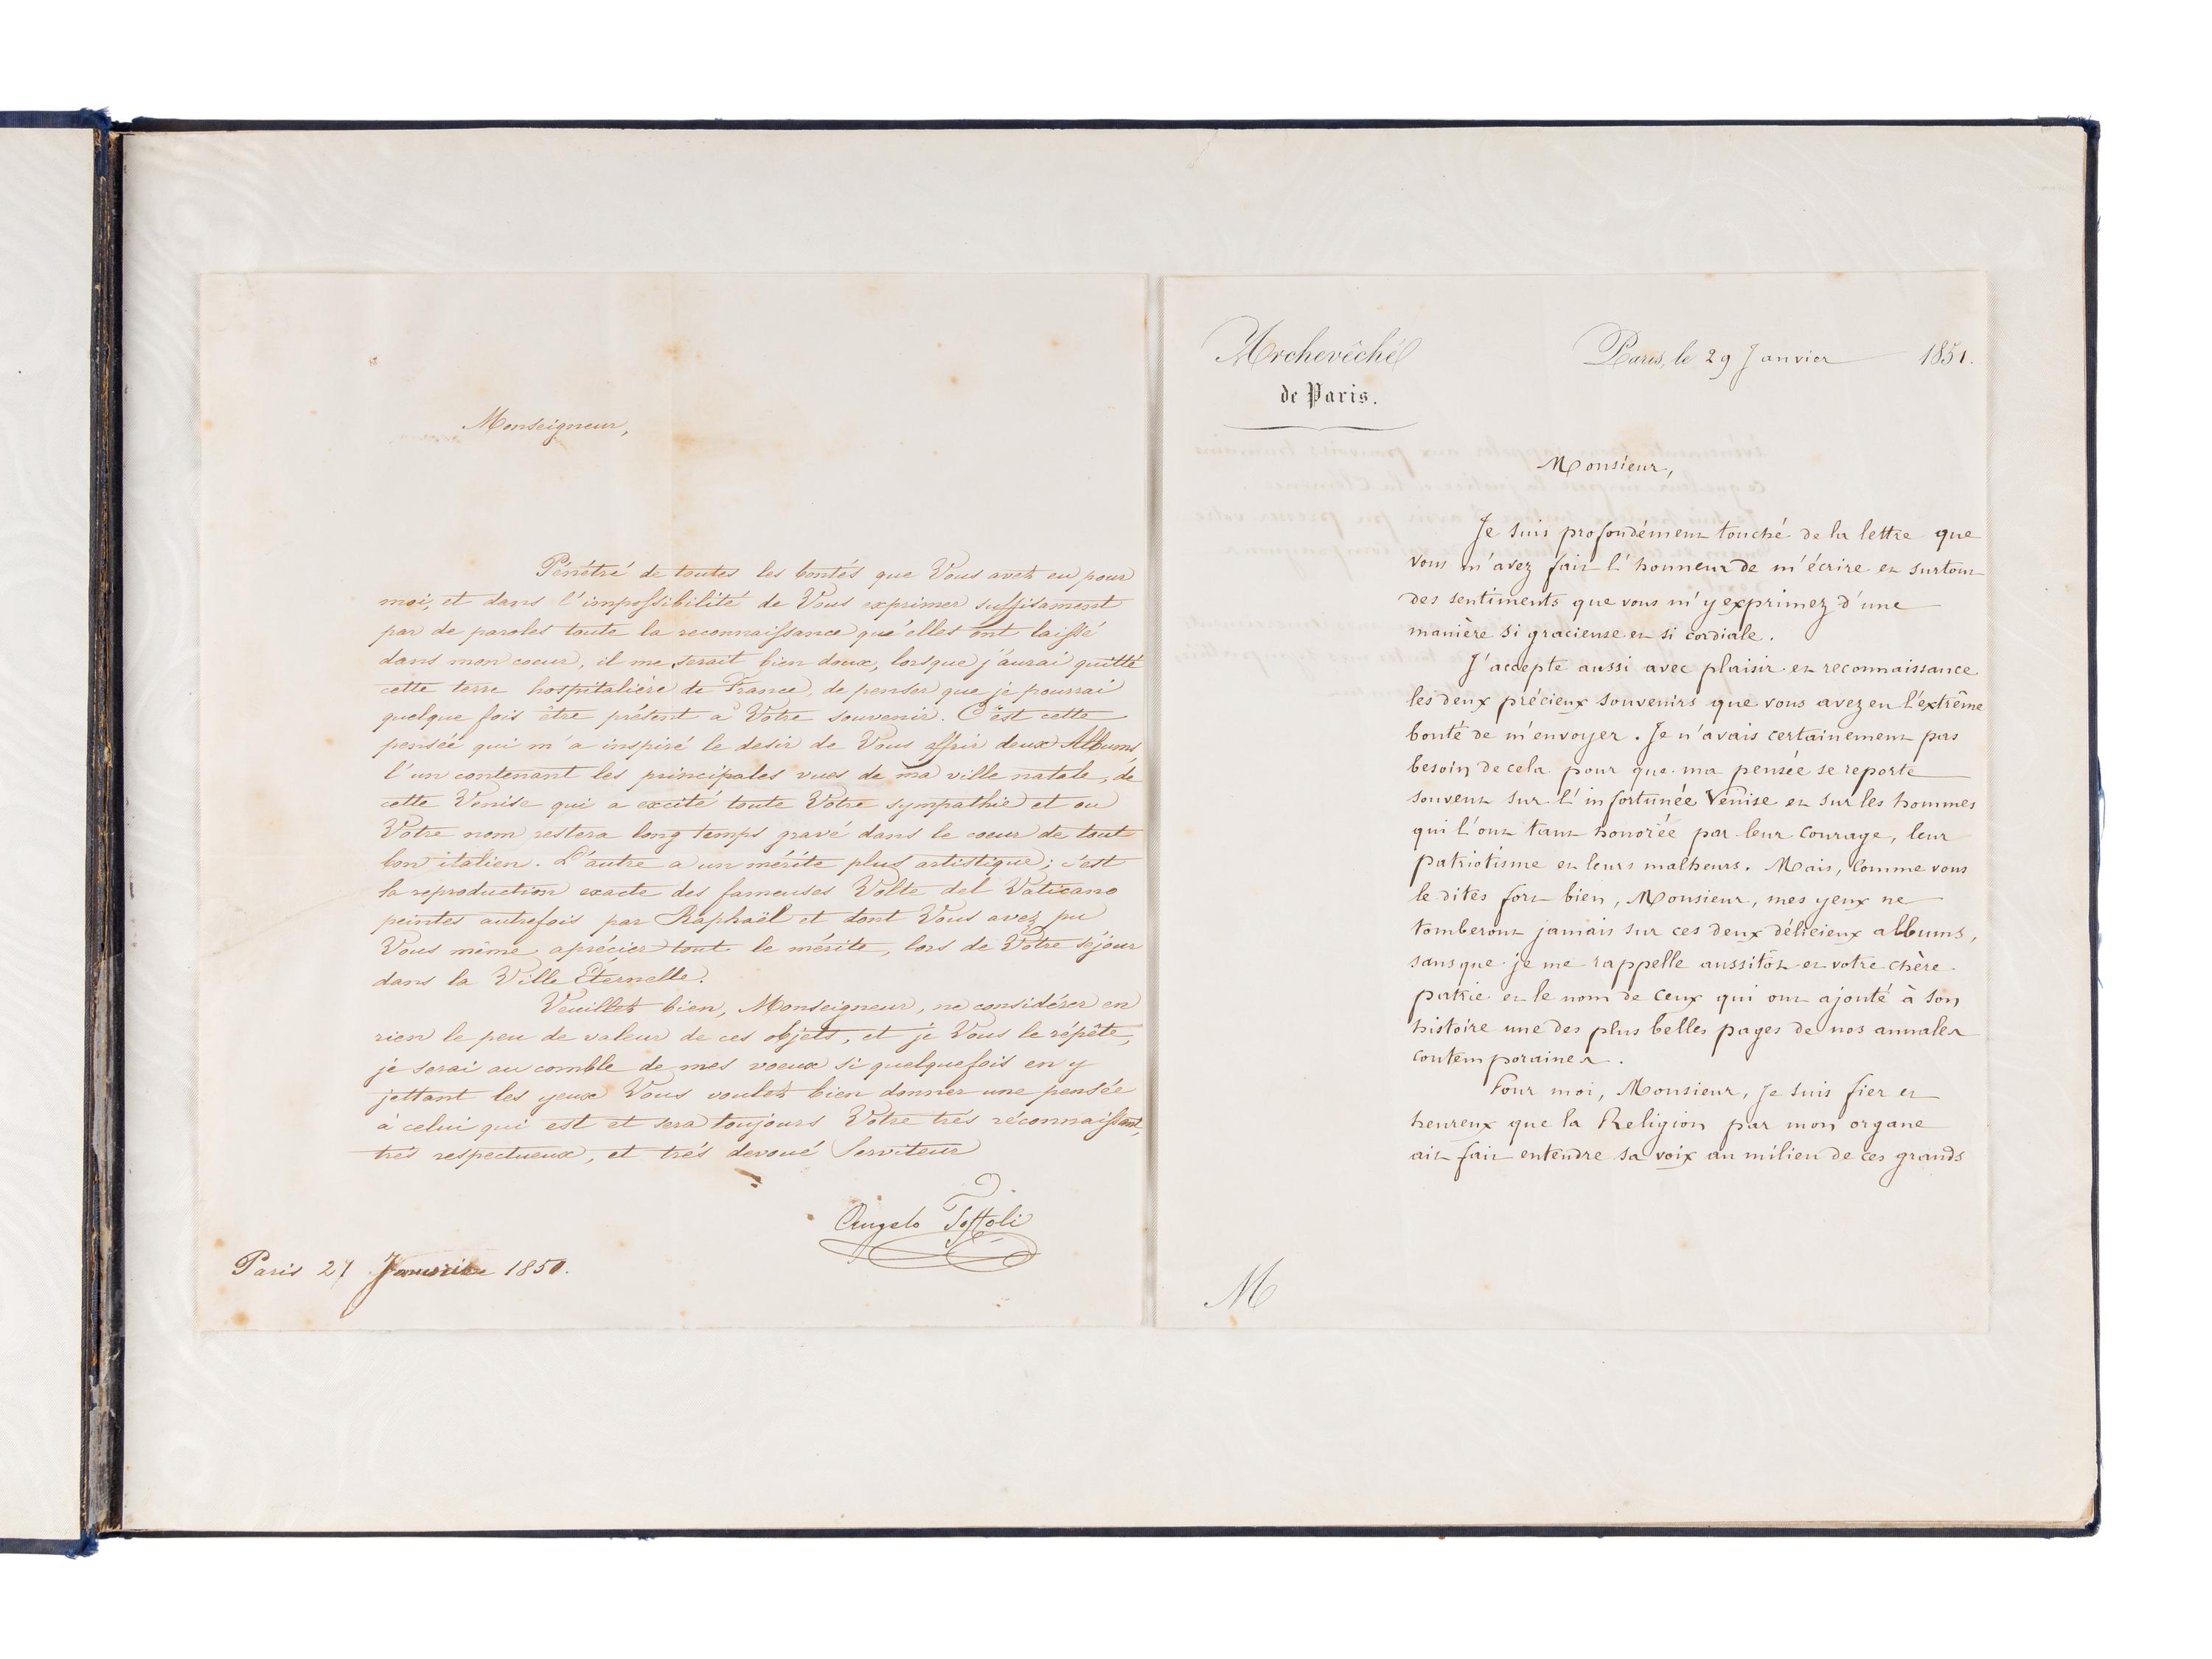 Monseigneur,
Pénétré de toutes les bontés que Vous avez eu pour
moi, et dans l'impossibilité de Vous exprimer suffisament
par de paroles toute la reconnaissance qu'elles ont laissé
dans mon coeur, il me serait bien doux, lorsque j'aurai quitté
cette terre hospitalière de France, de penser que je pourrai
quelque fois être présent a Votre souvenir. C'est cette
pensée qui m'a inspiré le desir de Vous offrir deux Albums
l'un contenant les principales vues de ma ville natale, de
cette Venise qui a excité toute Votre sympathie et ou
Votre nom restera long temps gravé dans le coeur de tout
bon italien. L'autre a un mérite plus artistique; c'est
la reproduction exacte des fameuses Volte del Vaticano
peintes autrefois par Raphaël et dont Vous avez pu
Vous même aprécier tout le mérite, lors de Votre séjour
dans la Ville Éternelle.
Veuillez bien, Monseigneur, ne considérer en
rien le peu de valeur de ces objets, et je Vous le répète,
je serai au comble de mes voeux si quelquefois en y
jettant les yeux Vous voulez bien donner une pensée
à celui qui est et sera toujours Votre trés réconnaissant,
trés respectueux, et trés devoué Serviteur
Angelo Toffoli
Paris 27 1850.
Archevêché
de Paris.
Paris, le 29 Janvier 1851.
Monsieur,
Je suis profondément touché de la lettre que
vous m'avez fait l'honneur de m'écrire et surtout
des sentiments que vous m'y exprimez d'une
manière si gracieuse et si cordiale.
J'accepte aussi avec plaisir et reconnaissance
les deux précieux souvenirs que vous avez eu l'extrême
bonté de m'envoyer. Je n'avais certainement pas
besoin de cela pour que ma pensée se reporte
souvent sur l'infortunée Venise et sur les hommes
qui l'ont tant honorée par leur courage, leur
patriotisme et leurs malheurs. Mais, comme vous
le dites fort bien, Monsieur, mes yeux ne
tomberont jamais sur ces deux délicieux albums,
sans que je me rappelle aussitôt et votre chère
patrie et le nom de ceux qui ont ajouté à son
histoire une des plus belles pages de nos annales
contemporaines.
Pour moi, Monsieur, je suis fier et
heureux que la Religion par mon organe
ait fait entendre sa voix au milieu de ces grands
M